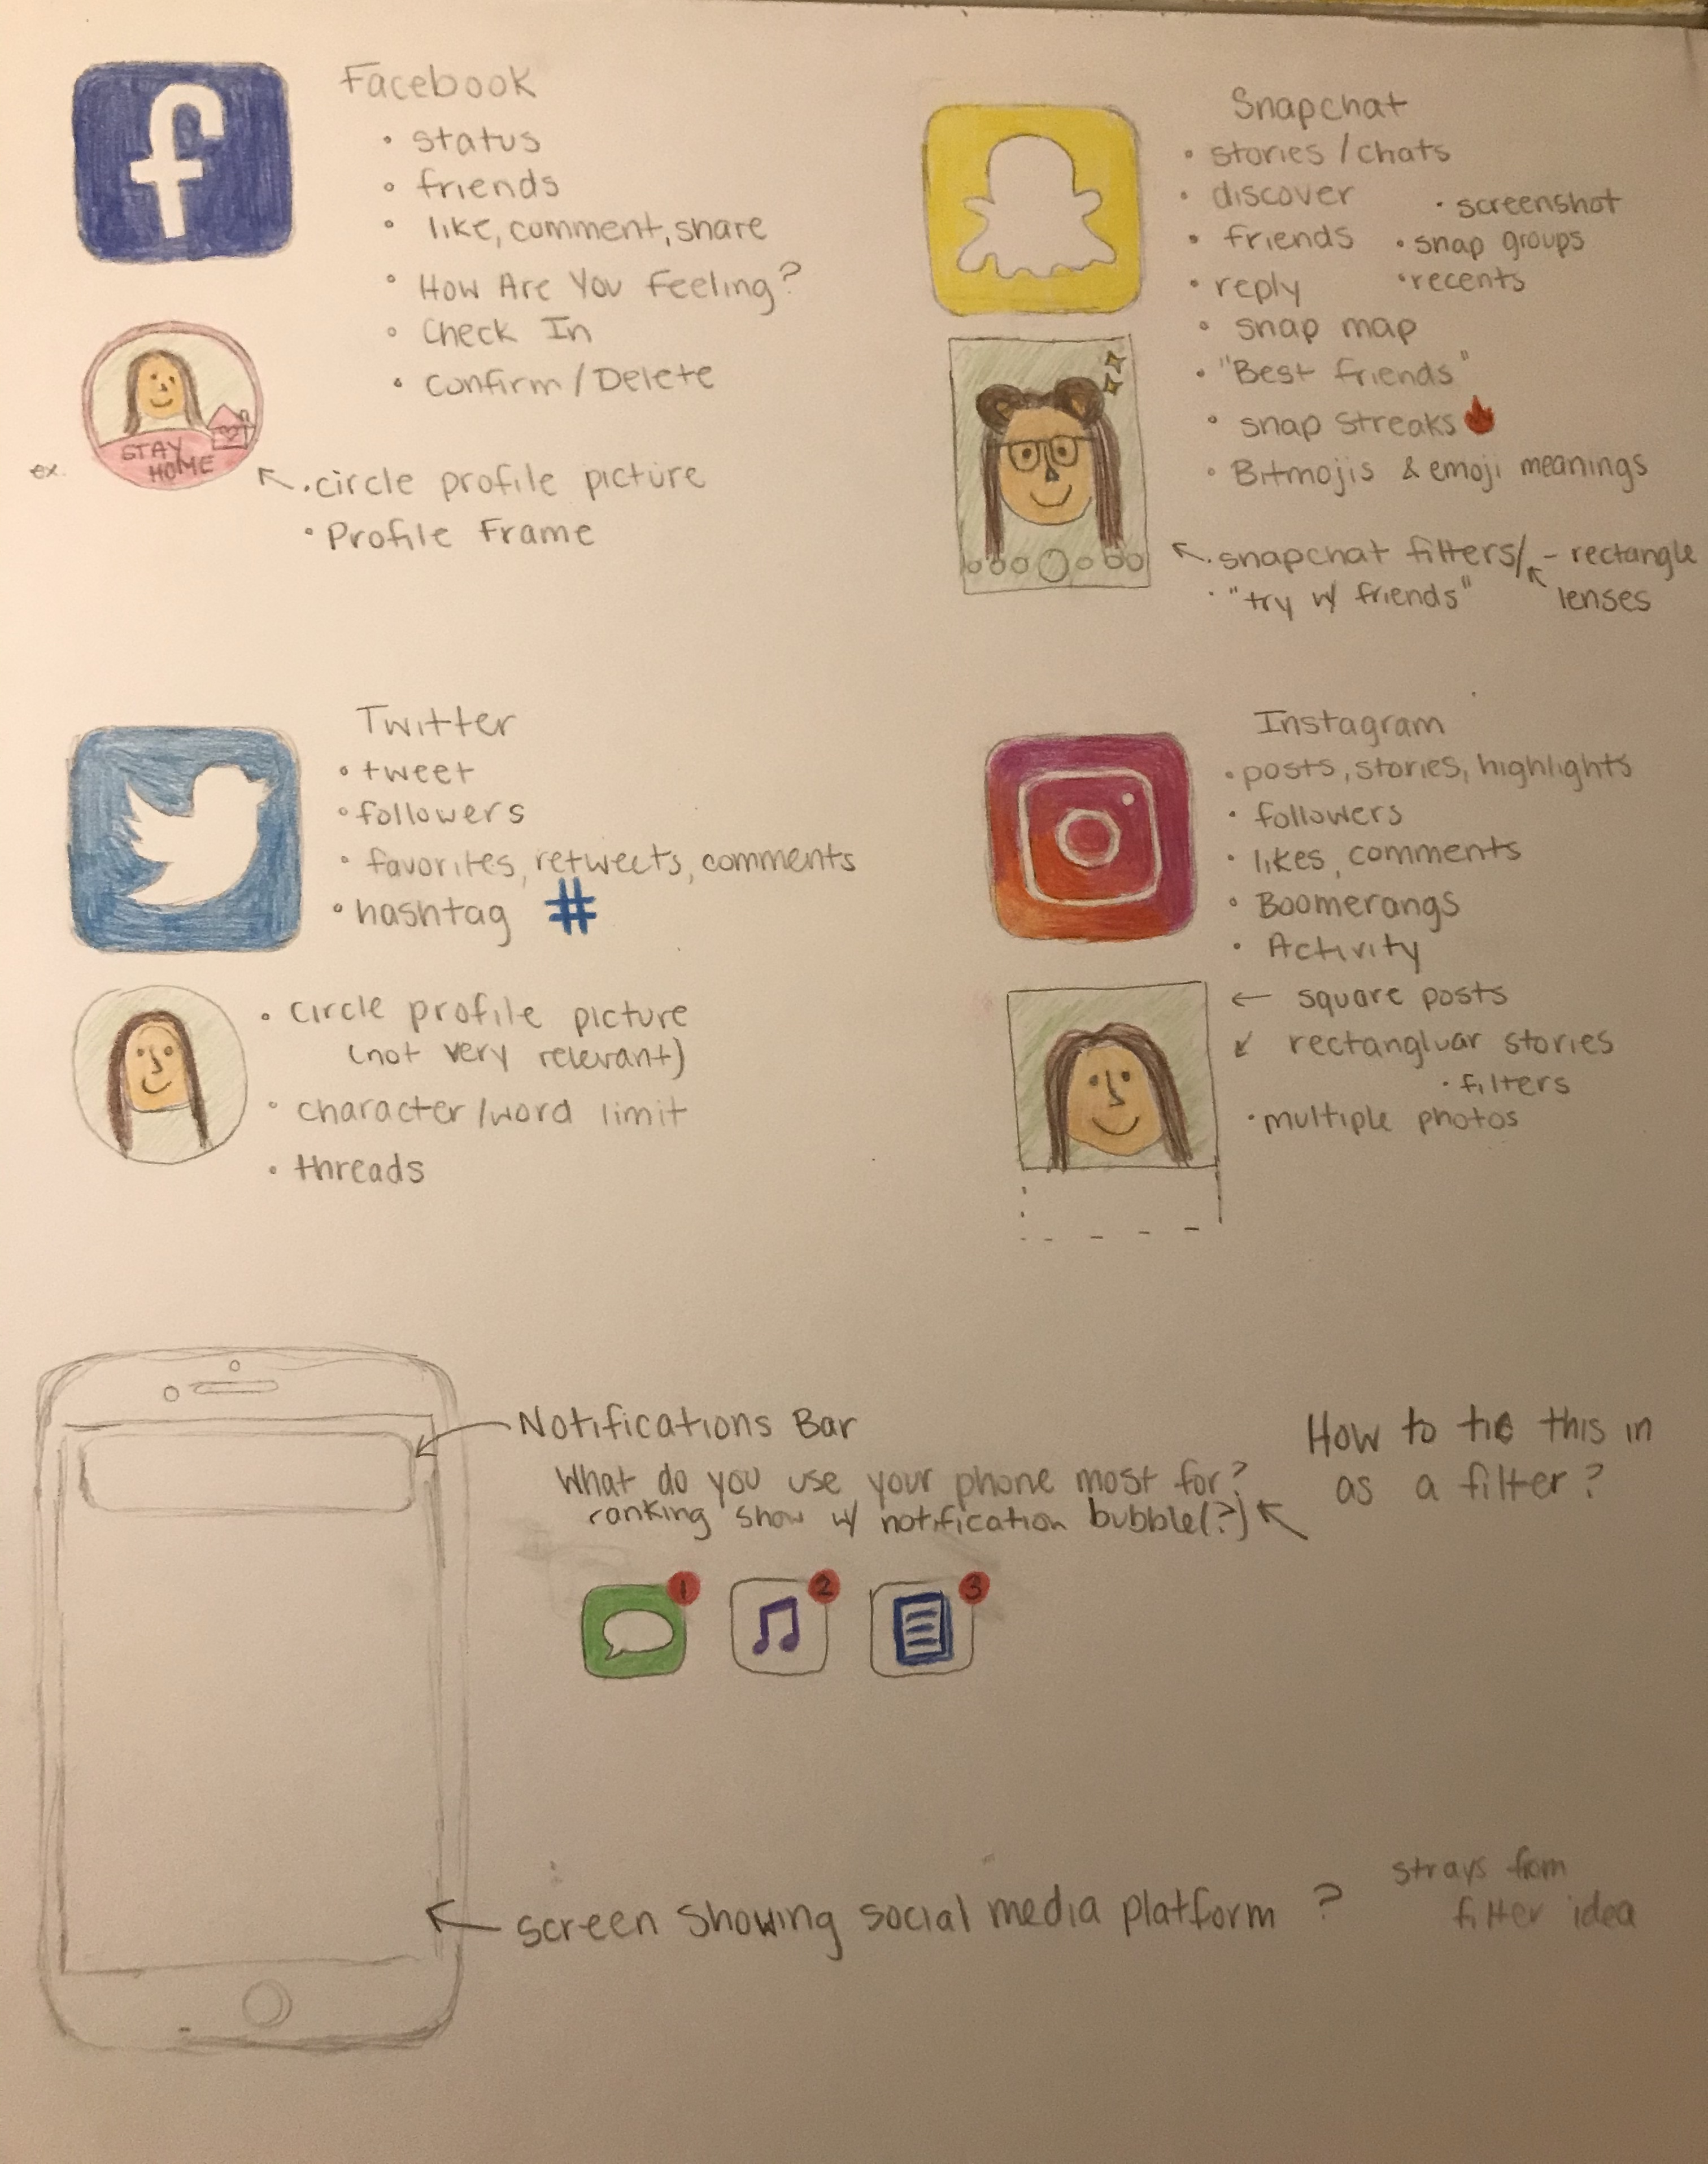 Facebook
• status
• friends
• like, comment, share
• How Are You Feeling?
• Check In
• Confirm / Delete
STAY
HOME
ex.
• circle profile picture
• Profile Frame
Snapchat
• stories / chats
• discover
• screenshot
• friends
• snap groups
• reply
• recents
• snap map
• "Best friends"
• snap streaks
• Bitmojis & emoji meanings
• snapchat filters/
- rectangle
lenses
• "try w/ friends"
Twitter
• tweet
• followers
• favorites, retweets, comments
• hashtag #
• circle profile picture
(not very relevant)
• character/word limit
• threads
Instagram
• posts, stories, highlights
• followers
• likes, comments
• Boomerangs
• Activity
← square posts
↙ rectangluar stories
• filters
• multiple photos
Notifications Bar
What do you use your phone most for?
ranking show w/ notification bubble(?)
How to tie this in
as a filter?
1
2
3
screen showing social media platform ?
strays from
filter idea